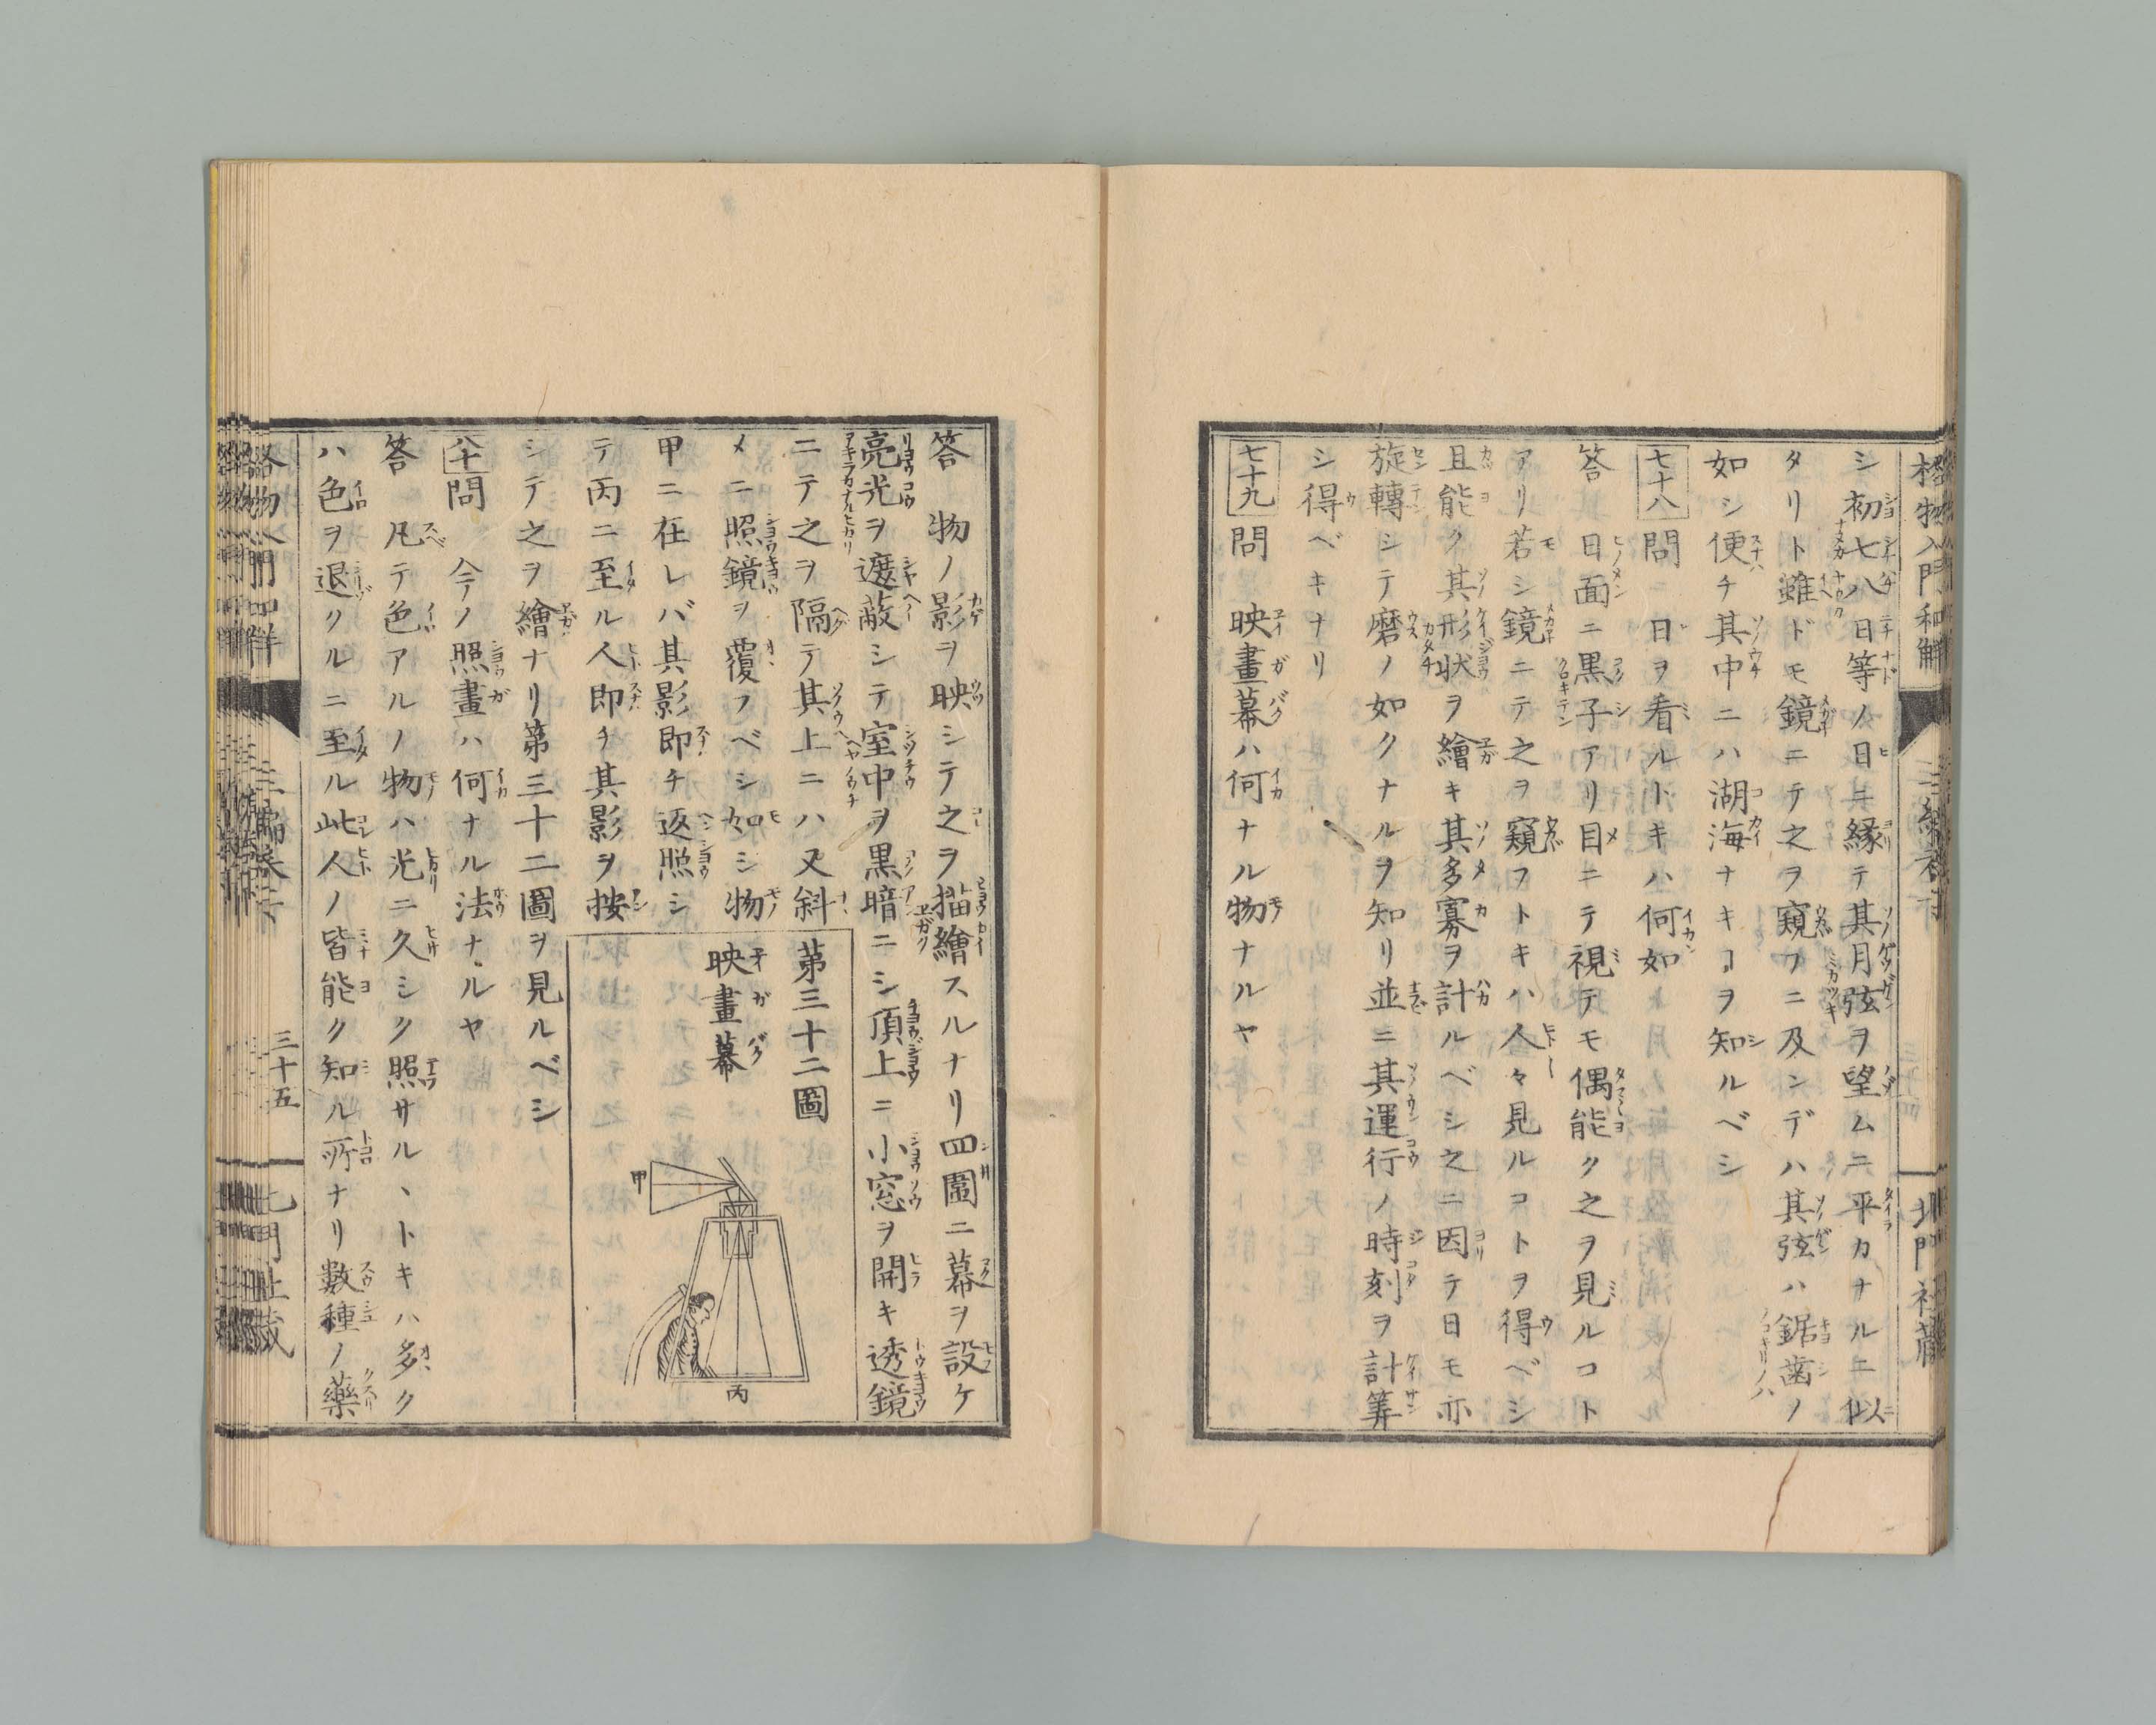 格物入門和解
北門社藏
シ初七八日等ノ日ニ縁テ其月弦ヲ望ムニ平カナルニ似
タリト雖ドモ鏡ニテ之ヲ窺フニ及ンデハ其弦ハ鋸歯ノ
如シ便チ其中ニハ湖海ナキヿヲ知ルベシ
七十八問 日ヲ看ルトキハ何如
答 日面ニ黒子アリ目ニテ視テモ偶能ク之ヲ見ルコト
アリ若シ鏡ニテ之ヲ窺フトキハ人々見ルコトヲ得ベシ
且能ク其形状ヲ繪キ其多寡ヲ計ルベシ之ニ因テ日モ亦
旋轉シテ磨ノ如クナルヲ知リ並ニ其運行ノ時刻ヲ計筭
シ得ベキナリ
七十九問 映畫幕ハ何ナル物ナルヤ
答 物ノ影ヲ映シテ之ヲ描繪スルナリ四圍ニ幕ヲ設ケ
亮光ヲ遮蔽シテ室中ヲ黒暗ニシ頂上ニ小窓ヲ開キ透鏡
ニテ之ヲ隔テ其上ニハ又斜
メニ照鏡ヲ覆フベシ如シ物
甲ニ在レバ其影即チ返照シ
テ丙ニ至ル人即チ其影ヲ按
シテ之ヲ繪ナリ第三十二圖ヲ見ルベシ
第三十二圖
映畫幕
甲
丙
八十問 今ノ照畫ハ何ナル法ナルヤ
答 凡テ色アルノ物ハ光ニ久シク照サルヽトキハ多ク
ハ色ヲ退クルニ至ル此人ノ皆能ク知ル所ナリ數種ノ藥
三十五